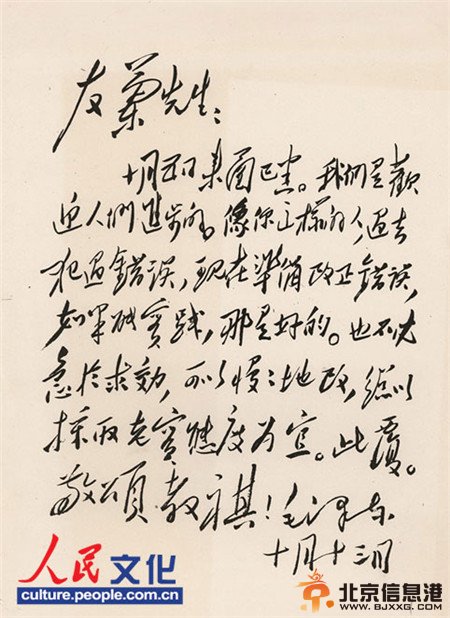 友蘭先生：
十月五日来函已悉。我們是歡
迎人們進步的。像你这樣的人，過去
犯過錯誤，现在準備改正錯誤，
如果能實践，那是好的。也不必
急於求効，可以慢々地改，總以
採取老實態度为宜。此覆。
敬頌教祺！毛泽东
十月十三日
人民文化
culture.people.com.cn
北京信息港
WWW.BJXXG.COM